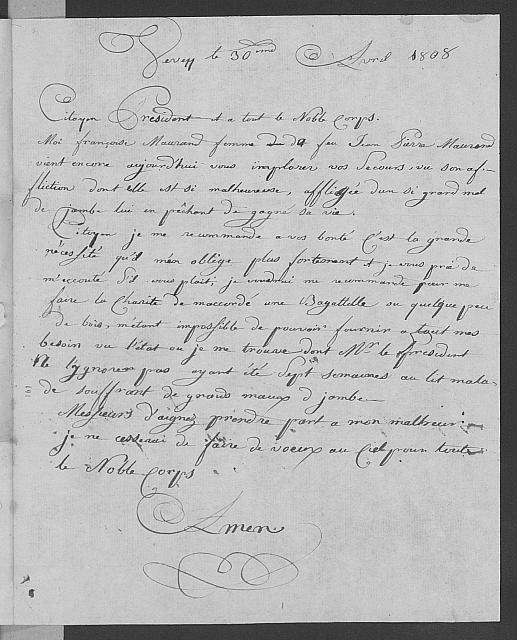 Vevey le 30me Avril 1808
Citoyen President et a tout le Noble Corps.
Moi françoise Maurand femme du feu Jean Pierre Maurand
vient encore aujourd'hui vous implorer vos Secours, vu son af-
fliction dont elle est si malheureuse, affligée d'un si grand mal
de jambe lui en pêchant de gagné sa vie.
Citoyen je me recommande a vos bonté C'est la grande
nécéssité qu'il m'en oblige plus fortement et je vous prié de
m'ecouté S'il vous plait; je viendrai me recommande pour me
faire la Charité de m'accordé une Bagattelle ou quelque peu
de bois, m'etant impossible de pouvoir fournir a tout mes
besoin vu l'état ou je me trouve dont Mr. le President
Ne l'ygnorer pas ayant été Sept Semaines au lit mala-
de souffrant de grands maux d jambe
Messieurs d'aignez prendre part a mon malheur
je ne cesserai de faire de voeux au Ciel pour toute
le Noble Corps
Amen